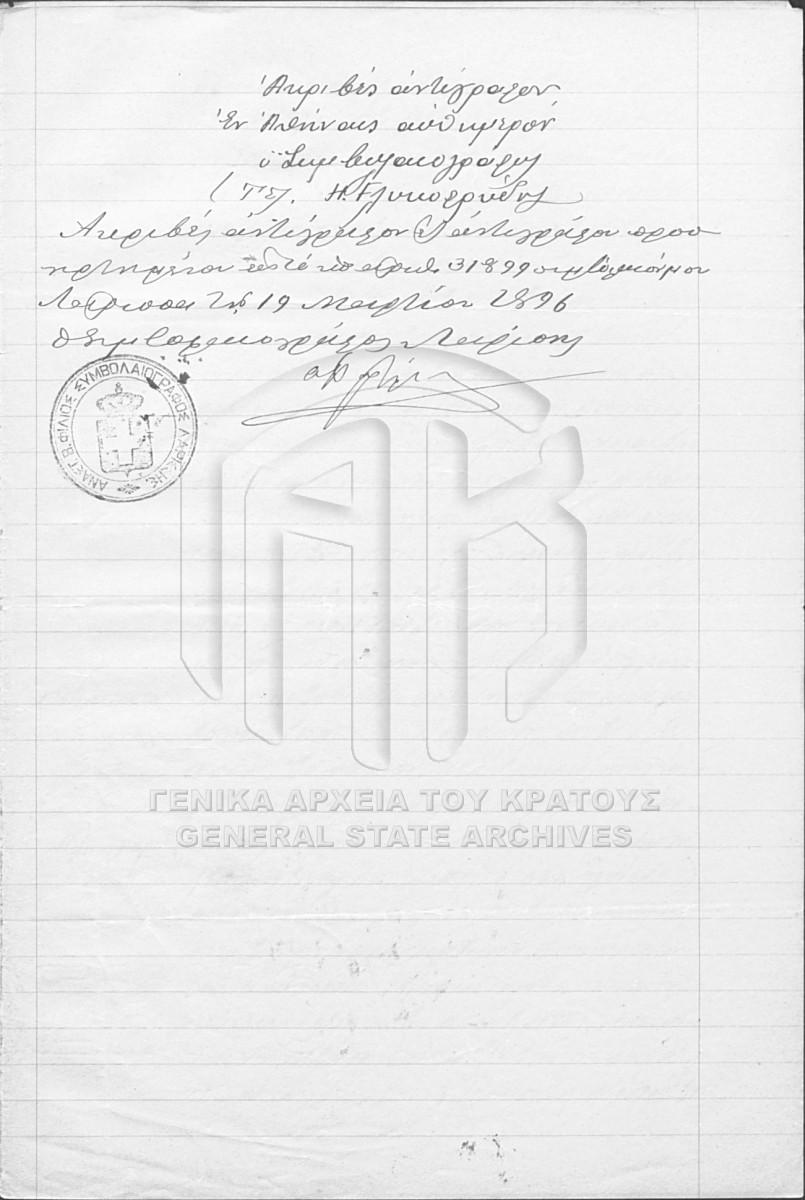 Ἀκριβὲς ἀντίγραφον
Ἐν Ἀθήναις αὐθημερόν
ὁ Συμβολαιογράφος
(Τ.Σ.)
Ἀκριβὲς ἀντίγραφον ἐξ ἀντιγράφου προσ
ηρτημένου ἀριθ. 31899 συμβόλαιόν μου
Λάρισσα τῇ 19 Μαρτίου 1896
ὁ Συμβολαιογράφος Λαρίσης
ΑΝΑΣΤ. Β. ΦΙΛΙΟΣ ΣΥΜΒΟΛΑΙΟΓΡΑΦΟΣ ΛΑΡΙΣΗΣ
ΓΕΝΙΚΑ ΑΡΧΕΙΑ ΤΟΥ ΚΡΑΤΟΥΣ
GENERAL STATE ARCHIVES